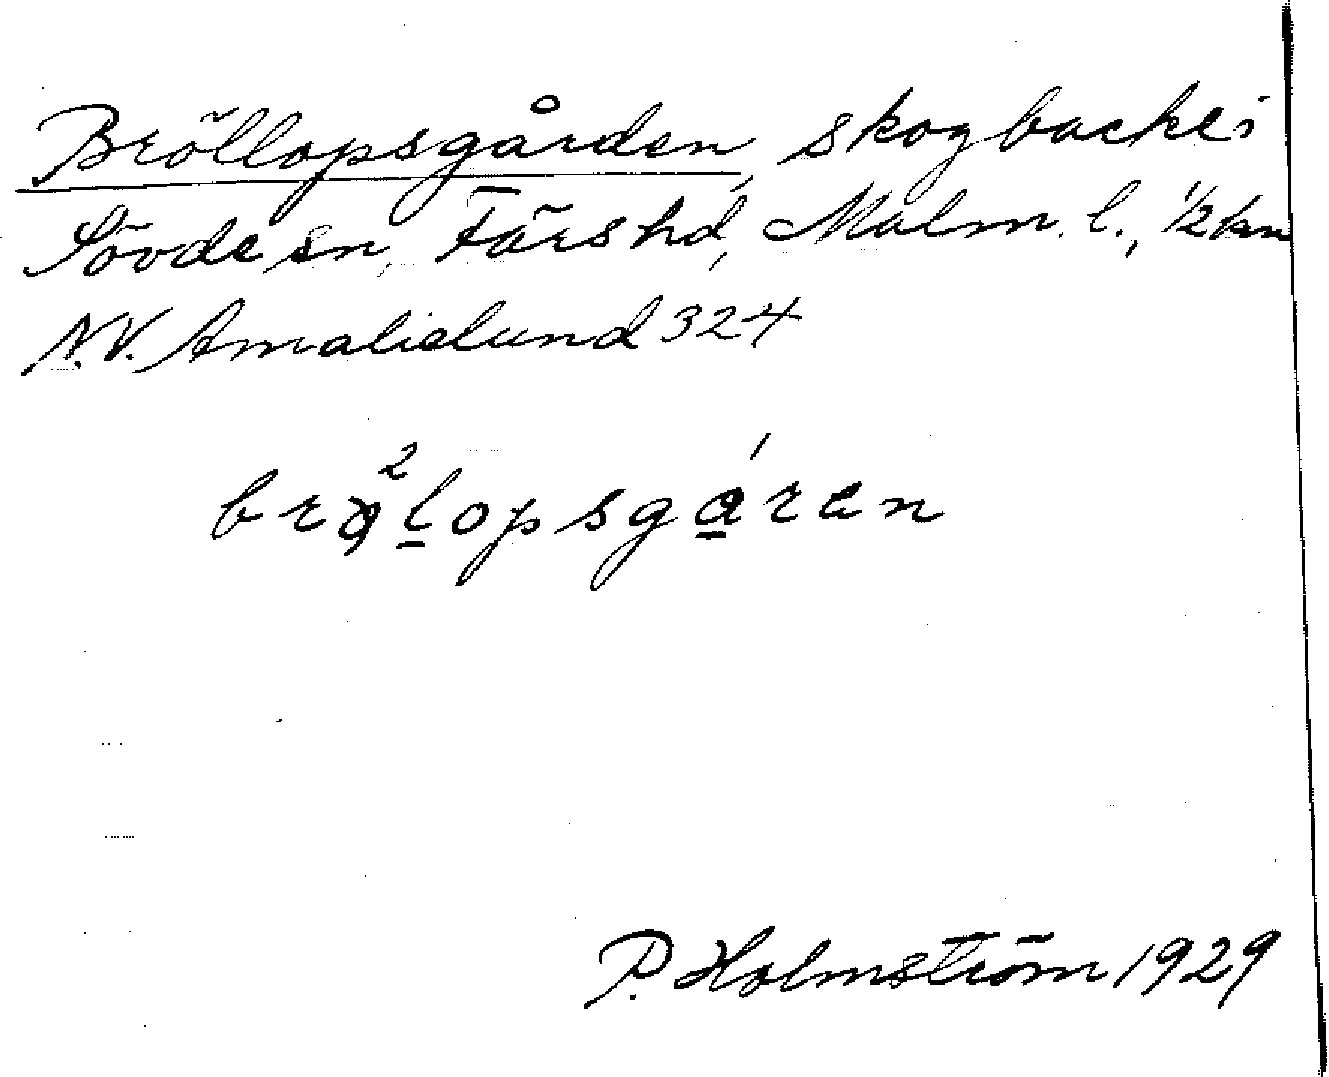 Bröllopsgården, skogbacke i
Sövde sn, Färs hd, Malm. l., 1/2 km
N.V. Amalielund 324
brǫ̈²l̲opsgá̲ren
P. Holmström 1929